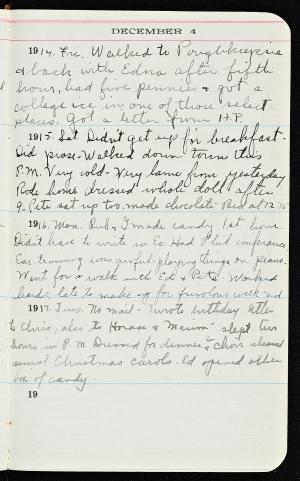 DECEMBER 4
1914. Fri. Walked to Poughkeepsie
& back with Edna after fifth
hour, had five pennies & got a
college ice in one of those select
places. Got a letter from H.P.
1915. Sat. Didn't get up for breakfast-
Did prose - Walked down town this
P.M. Very cold - Very lame from yesterday
Rode home dressed whole doll after
9 - Pete sat up too, made chocolate - Bed at 12:15
1916. Mon. Deb & I made candy 1st hour.
Didn't have to write in Ec. Had Phil conference
Ear training was awful - playing things on piano.
Went for a walk with Ed & Pete. Worked
hard & late to make up for frivolous week-end
1917. Tues. No mail - Wrote birthday letter
to Chris, also to Horace & Mimi - slept two
hours in P.M. Dressed for dinner, & choir
several Christmas carols. Ed opened other
box of candy.
19